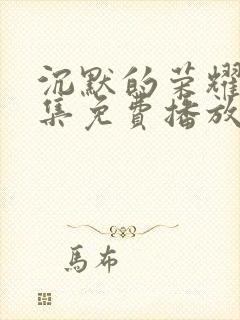 沉默的荣耀
集免費播放
馬布